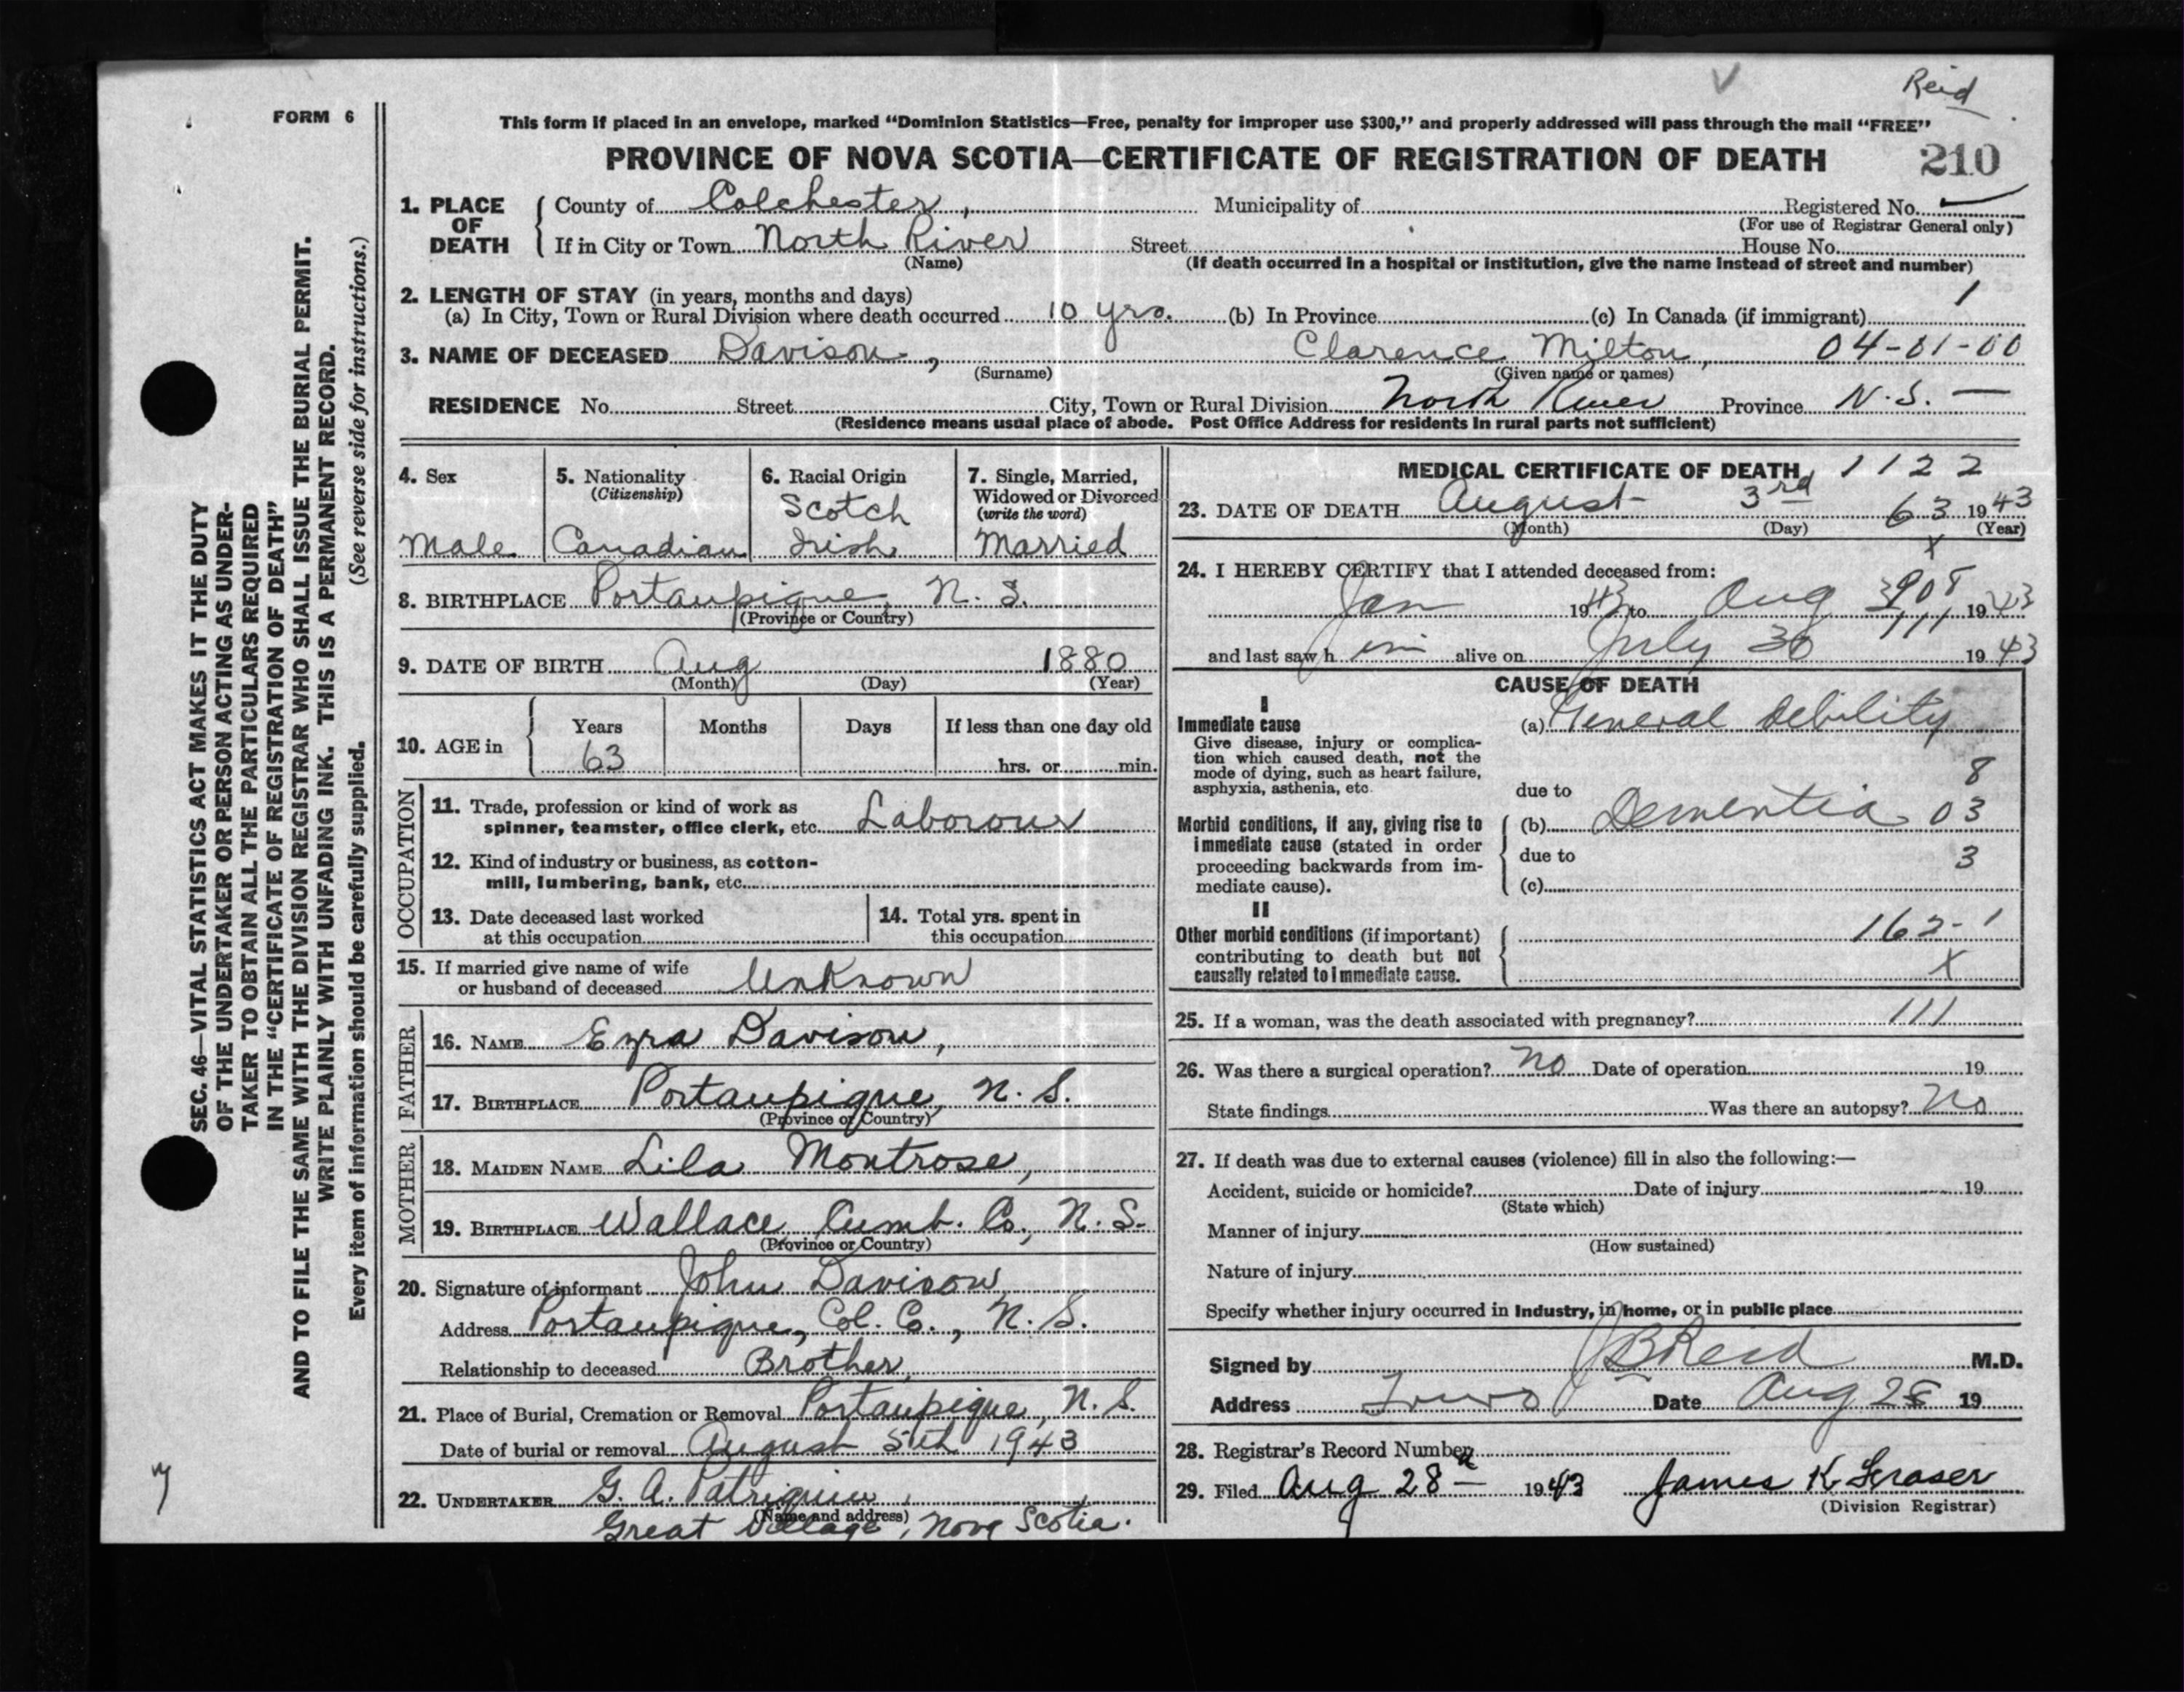 Reid
FORM 6
This form if placed in an envelope, marked "Dominion Statistics—Free, penalty for improper use $300," and properly addressed will pass through the mail "FREE"
PROVINCE OF NOVA SCOTIA—CERTIFICATE OF REGISTRATION OF DEATH 210
SEC. 46—VITAL STATISTICS ACT MAKES IT THE DUTY
OF THE UNDERTAKER OR PERSON ACTING AS UNDER-
TAKER TO OBTAIN ALL THE PARTICULARS REQUIRED
IN THE "CERTIFICATE OF REGISTRATION OF DEATH"
AND TO FILE THE SAME WITH THE DIVISION REGISTRAR WHO SHALL ISSUE THE BURIAL PERMIT.
WRITE PLAINLY WITH UNFADING INK. THIS IS A PERMANENT RECORD.
Every item of information should be carefully supplied. (See reverse side for instructions.)
1. PLACE OF DEATH
County of Colchester, Municipality of Registered No.
(For use of Registrar General only)
If in City or Town North River Street House No.
(Name) (If death occurred in a hospital or institution, give the name instead of street and number)
2. LENGTH OF STAY (in years, months and days) 1
(a) In City, Town or Rural Division where death occurred 10 yrs. (b) In Province (c) In Canada (if immigrant)
3. NAME OF DECEASED Davison, Clarence Milton, 04-01-00
(Surname) (Given name or names)
RESIDENCE No. Street City, Town or Rural Division North River Province N.S. —
(Residence means usual place of abode. Post Office Address for residents in rural parts not sufficient)
4. Sex
Male
5. Nationality
(Citizenship)
Canadian
6. Racial Origin
Scotch
Irish
7. Single, Married,
Widowed or Divorced
(write the word)
Married
8. BIRTHPLACE Portaupique, N. S.
(Province or Country)
9. DATE OF BIRTH Aug 1880
(Month) (Day) (Year)
10. AGE in Years Months Days If less than one day old
63 hrs. or min.
OCCUPATION
11. Trade, profession or kind of work as
spinner, teamster, office clerk, etc. Labourour
12. Kind of industry or business, as cotton-
mill, lumbering, bank, etc.
13. Date deceased last worked
at this occupation
14. Total yrs. spent in
this occupation
15. If married give name of wife
or husband of deceased Unknown
FATHER
16. NAME Ezra Davison,
17. BIRTHPLACE Portaupique, N. S.
(Province or Country)
MOTHER
18. MAIDEN NAME Lila Montrose,
19. BIRTHPLACE Wallace Cumb. Co., N. S.
(Province or Country)
20. Signature of informant John Davison
Address Portaupique, Col. Co., N. S.
Relationship to deceased Brother
21. Place of Burial, Cremation or Removal Portaupique, N. S.
Date of burial or removal August 5th 1943
22. UNDERTAKER G. A. Patriquin,
(Name and address)
Great Village, Nova Scotia.
MEDICAL CERTIFICATE OF DEATH 1122
23. DATE OF DEATH August 3rd 63 1943
(Month) (Day) (Year)
x
24. I HEREBY CERTIFY that I attended deceased from:
Jan 1943 to Aug 1943
111
and last saw him alive on July 30 1943
CAUSE OF DEATH
I
Immediate cause
Give disease, injury or complica-
tion which caused death, not the
mode of dying, such as heart failure,
asphyxia, asthenia, etc.
(a) General debility
8
due to
Morbid conditions, if any, giving rise to
immediate cause (stated in order
proceeding backwards from im-
mediate cause).
(b) Dementia 03
due to 3
(c)
II
Other morbid conditions (if important)
contributing to death but not
causally related to immediate cause.
162-1
X
25. If a woman, was the death associated with pregnancy? 111
26. Was there a surgical operation? No Date of operation 19
State findings Was there an autopsy? No
27. If death was due to external causes (violence) fill in also the following:—
Accident, suicide or homicide? Date of injury 19
(State which)
Manner of injury
(How sustained)
Nature of injury
Specify whether injury occurred in industry, in home, or in public place
Signed by J B Reid M.D.
Address Truro Date Aug 28 19
28. Registrar's Record Number
29. Filed Aug 28 1943 James K Fraser
(Division Registrar)